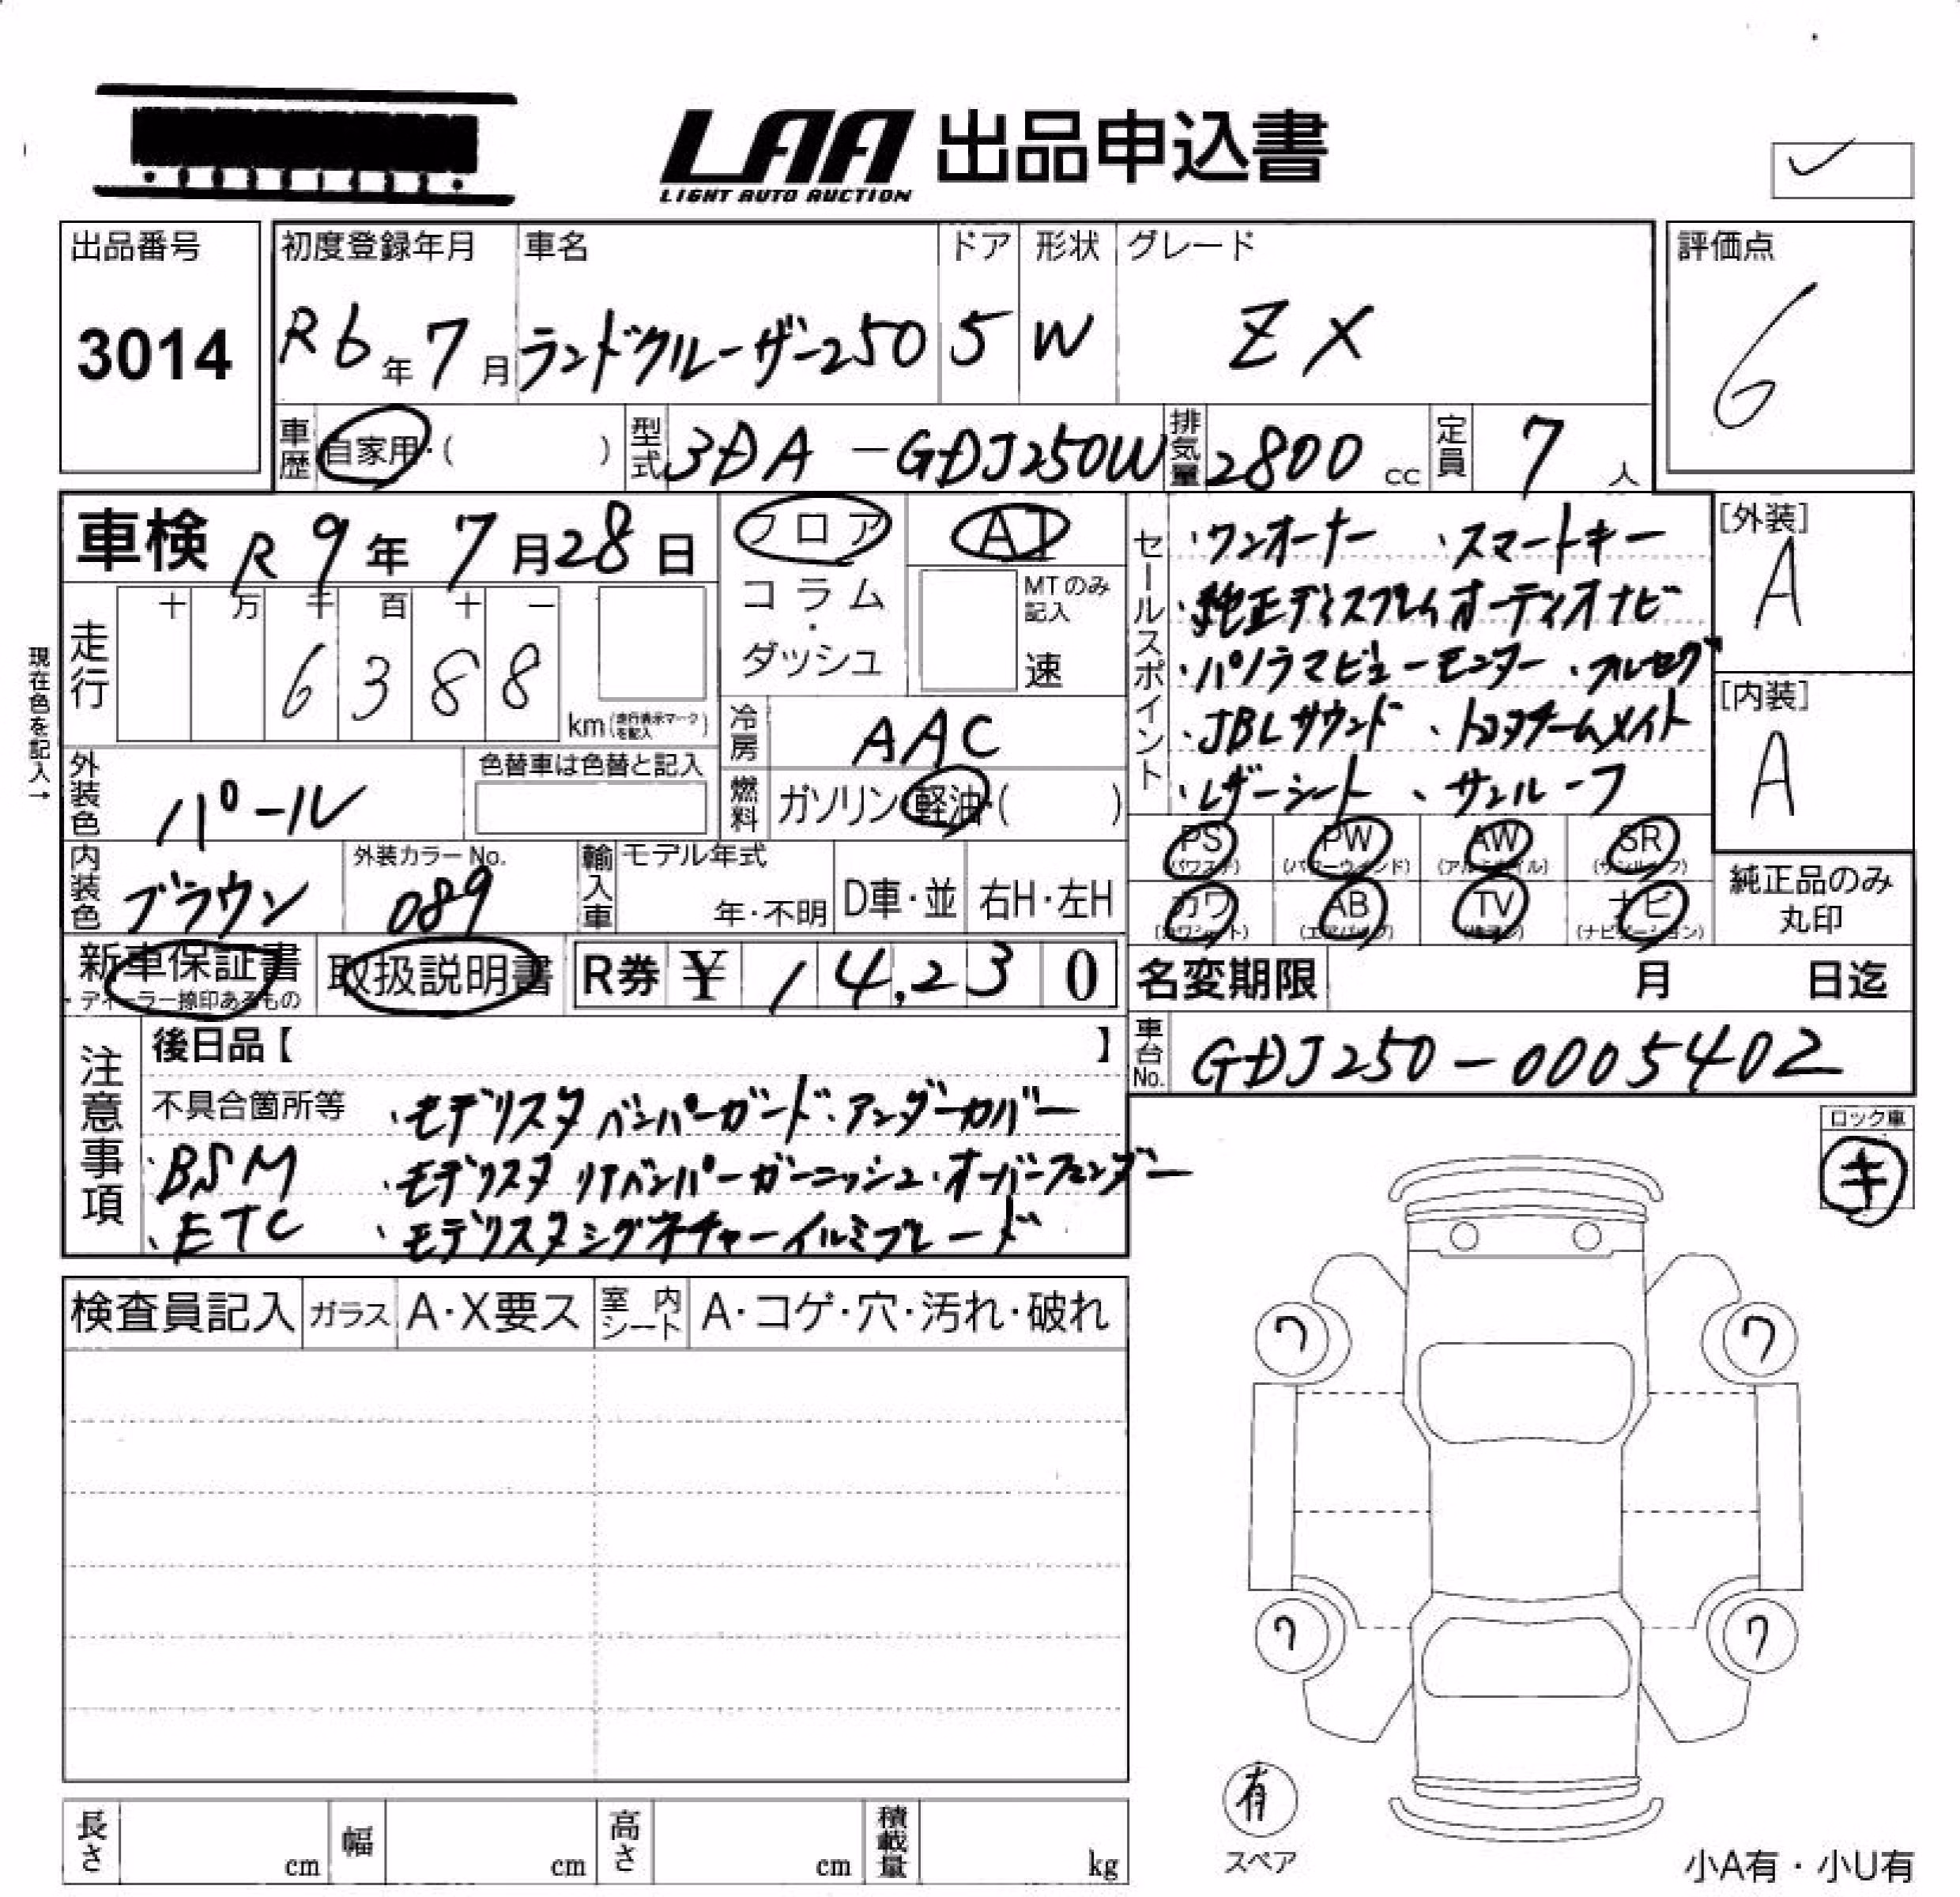 LAA 出品申込書
LIGHT AUTO AUCTION
出品番号
3014
初度登録年月 車名 ドア 形状 グレード
R6年7月 ランドクルーザー250 5 W ZX
評価点
6
車歴 自家用・( ) 型式 3DA-GDJ250W 排気量 2800cc 定員 7人
車検 R9年7月28日
フロア AT
コラム・ダッシュ
MTのみ記入
速
現在色を記入→
走行 十 万 千 百 十 一
6388
km(走行表示マークを記入)
冷房 AAC
外装色 パール 色替車は色替と記入
燃料 ガソリン・軽油・( )
内装色 ブラウン 外装カラーNo. 089
輸入車 モデル年式 年・不明 D車・並 右H・左H
セールスポイント
・ワンオーナー ・スマートキー
・純正ディスプレイオーディオナビ
・パノラマビューモニター ・フルセグ
・JBLサウンド ・トヨタチームメイト
・レザーシート ・サンルーフ
[外装]
A
[内装]
A
PS PW AW SR
(パワステ) (パワーウィンド) (アルミホイル) (サンルーフ)
カワ AB TV ナビ
(カワシート) (エアバッグ) (テレビ) (ナビゲーション)
純正品のみ
丸印
新車保証書 取扱説明書 R券 ¥ 14,230
ディーラー捺印あるもの
名変期限 月 日迄
注意事項
後日品【 】
車台No. GDJ250-0005402
不具合箇所等 ・モデリスタ バンパーガード・アンダーカバー
・BSM ・モデリスタ リヤバンパーガーニッシュ・オーバーフェンダー
・ETC ・モデリスタシグネチャーイルミブレード
ロック車
キ
検査員記入 ガラス A・X要ス 室内シート A・コゲ・穴・汚れ・破れ
ワ ワ
ワ ワ
有
スペア
長さ cm 幅 cm 高さ cm 積載量 kg
小A有・小U有